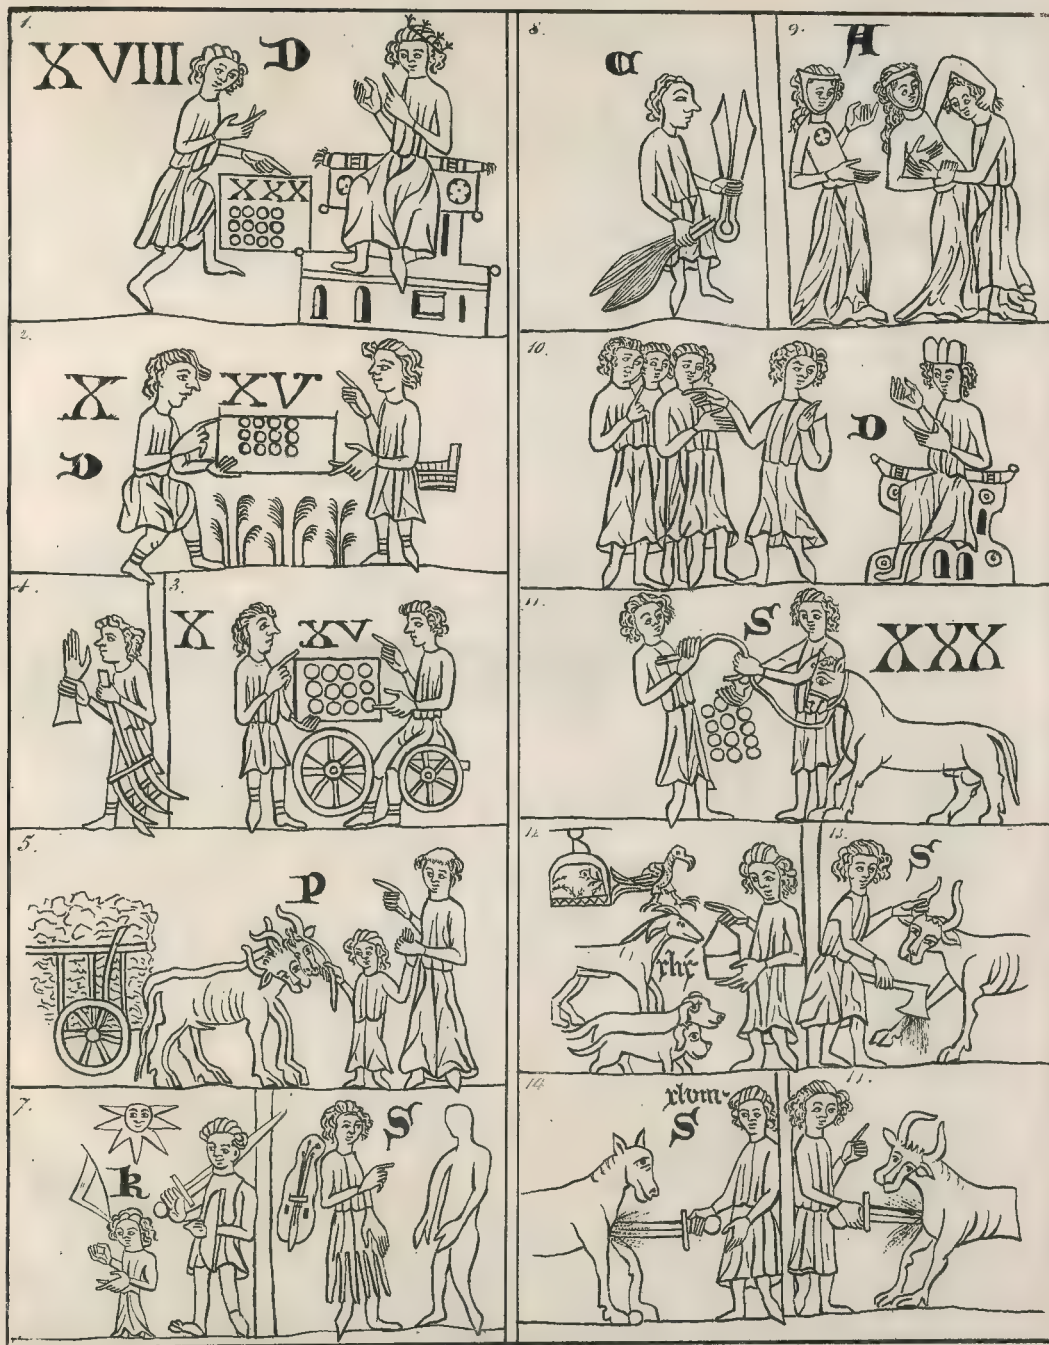 1.
XVIII D
XXX
2.
X XV
D
4.
3.
X XV
5.
P
7.
k
S
8.
C
9.
A
10.
D
11.
S XXX
12
13.
S
14
S